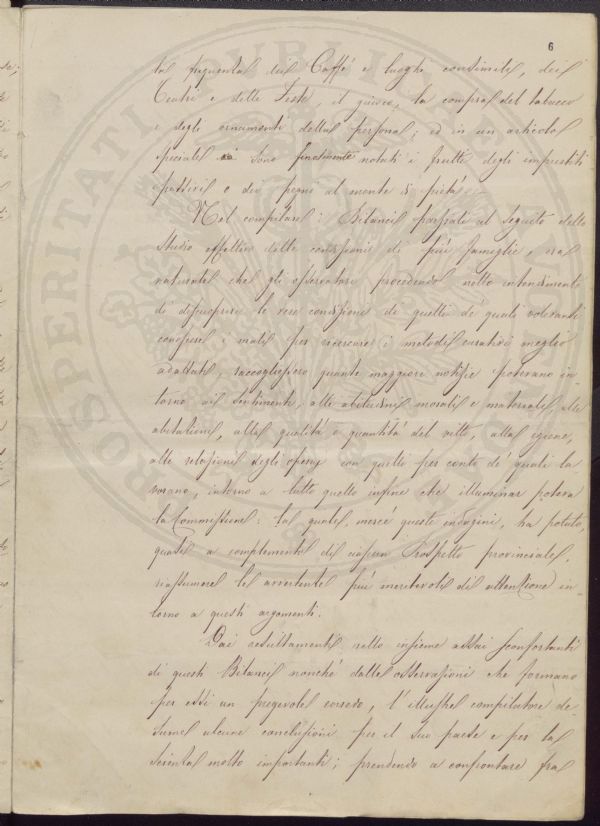 6
la frequenza dei Caffè e luoghi consimili, dei
Teatri e delle Feste, il giuoco, la compra del tabacco
e degli ornamenti della persona; ed in un articolo
speciale sono finalmente notati i frutti degli imprestiti
passivi o dei pegni al monte di pietà.
Nel compilare i Bilanci parziali al seguito dello
studio effettivo delle condizioni di più famiglie, era
naturale che gli osservatori procedendo nello intendimento
di discuoprire le vere condizioni di quelli de' quali volevansi
conoscere i mali per ricercare i metodi curativi meglio
adattati, raccogliessero quante maggiori notizie potevano in-
torno ai sentimenti, alle abitudini morali e materiali, alle
abitazioni, alla qualità e quantità del vitto, alla igiene,
alle relazioni degli operai con quelli per conto de' quali la
vorano, intorno a tutto quello infine che illuminar poteva
la Commissione: la quale, mercé queste indagini, ha potuto,
quasi a complemento di ciascun Prospetto provinciale,
riassumere le avvertenze più meritevoli di attenzione in-
torno a questi argomenti.
Dai resultamenti nello insieme assai sconfortanti
di questi Bilanci nonché dalle osservazioni che formano
per essi un pregevole corredo, l'illustre compilatore de-
sume alcune conclusioni per il suo paese e per la
scienza molto importanti; prendendo a confrontare fra
PROSPERITATI PUBLICAE